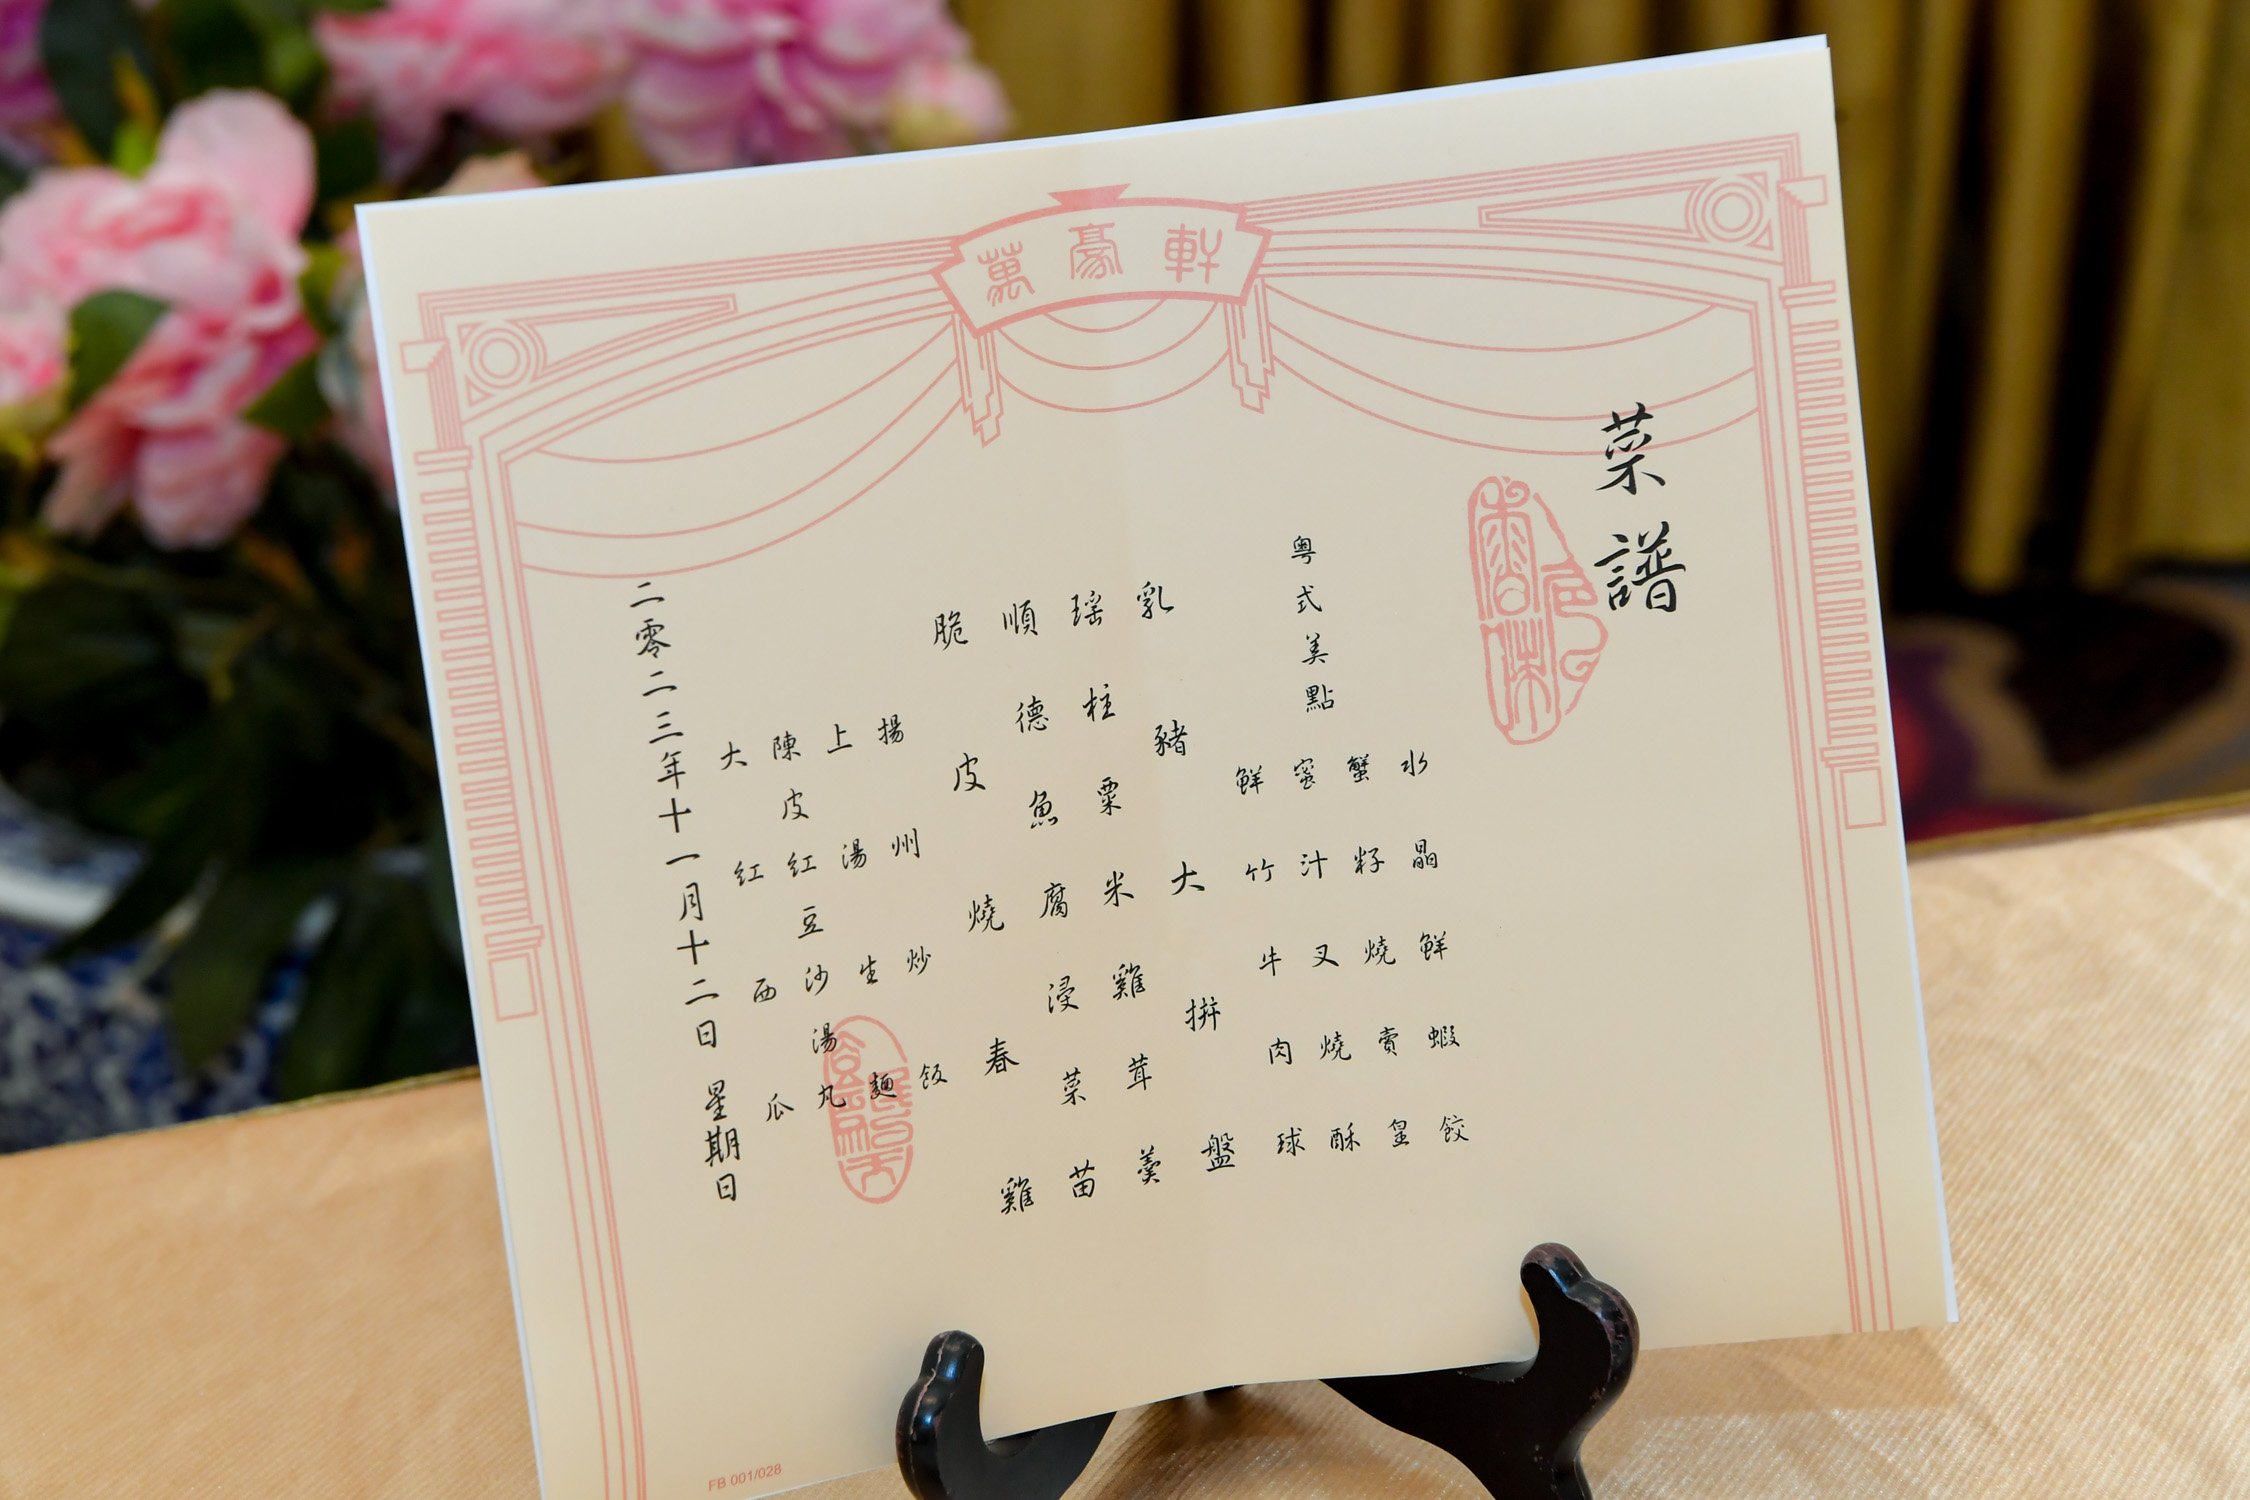 萬豪軒
菜譜
色香味
粵式美點
水晶鮮蝦餃
蟹籽燒賣皇
蜜汁叉燒酥
鮮竹牛肉球
乳豬大拼盤
瑤柱粟米雞茸羹
順德魚腐浸菜苗
脆皮燒春雞
揚州炒飯
上湯生麵
陳皮紅豆沙湯丸
大紅西瓜
二零二三年十一月十二日 星期日
FB 001/028